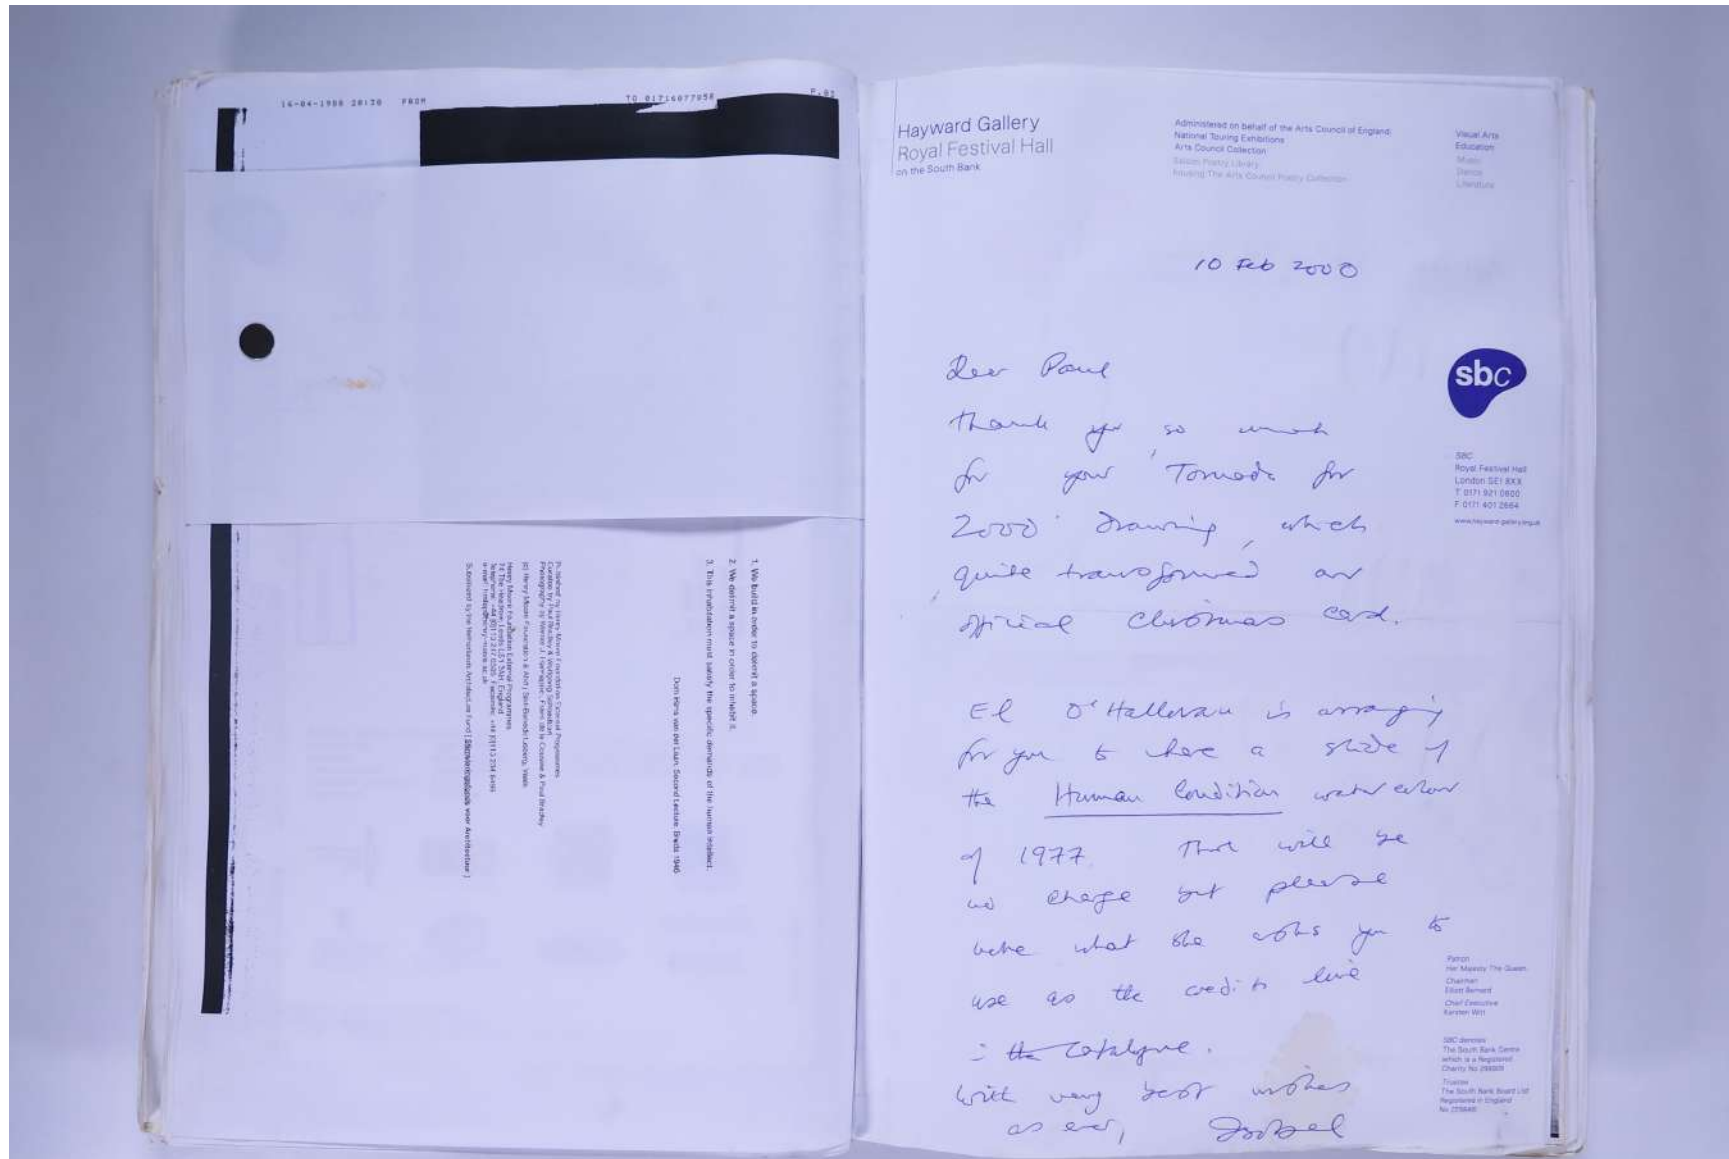 14-04-1980 20:30 FROM TO 01716077050 P.03
1. We build in order to delimit a space.
2. We delimit a space in order to inhabit it.
3. This inhabitation must satisfy the specific demands of the human intellect.
Dom Hans van der Laan, Second Lecture, Breda 1946
Published by Henry Moore Foundation External Programmes
Curated by Paul Bradley &
Photography by Werner J. Hannappel, & Paul Bradley
(c) Henry Moore Foundation & Abdij Sint-Benedictusberg, Vaals
Henry Moore Foundation External Programmes
74 The Headrow, Leeds LS1 3AH, England
Telephone: Facsimile:
e-mail:
Subsidized by the Netherlands Architecture Fund [ Stimuleringsfonds voor Architectuur ]
Hayward Gallery
Royal Festival Hall
on the South Bank
Administered on behalf of the Arts Council of England:
National Touring Exhibitions
Arts Council Collection
Saison Poetry Library
housing The Arts Council Poetry Collection
Visual Arts
Education
Music
Dance
Literature
10 Feb 2000
Dear Paul
Thank you so much
for your 'Tornado for
2000' drawing, which
quite transformed our
official Christmas card.
El O'Halloran is arranging
for you to have a slide of
the Human Condition watercolour
of 1977. There will be
no charge but please
note what she asks you to
use as the credit line
in the catalogue.
With very best wishes
as ever, Isobel
sbc
SBC
Royal Festival Hall
London SE1 8XX
T 0171 921 0600
F 0171 401 2664
www.hayward-gallery.org.uk
Patron
Her Majesty The Queen
Chairman
Elliott Bernerd
Chief Executive
Karsten Witt
SBC denotes
The South Bank Centre
which is a Registered
Charity No 298909
Trustee
The South Bank Board Ltd
Registered in England